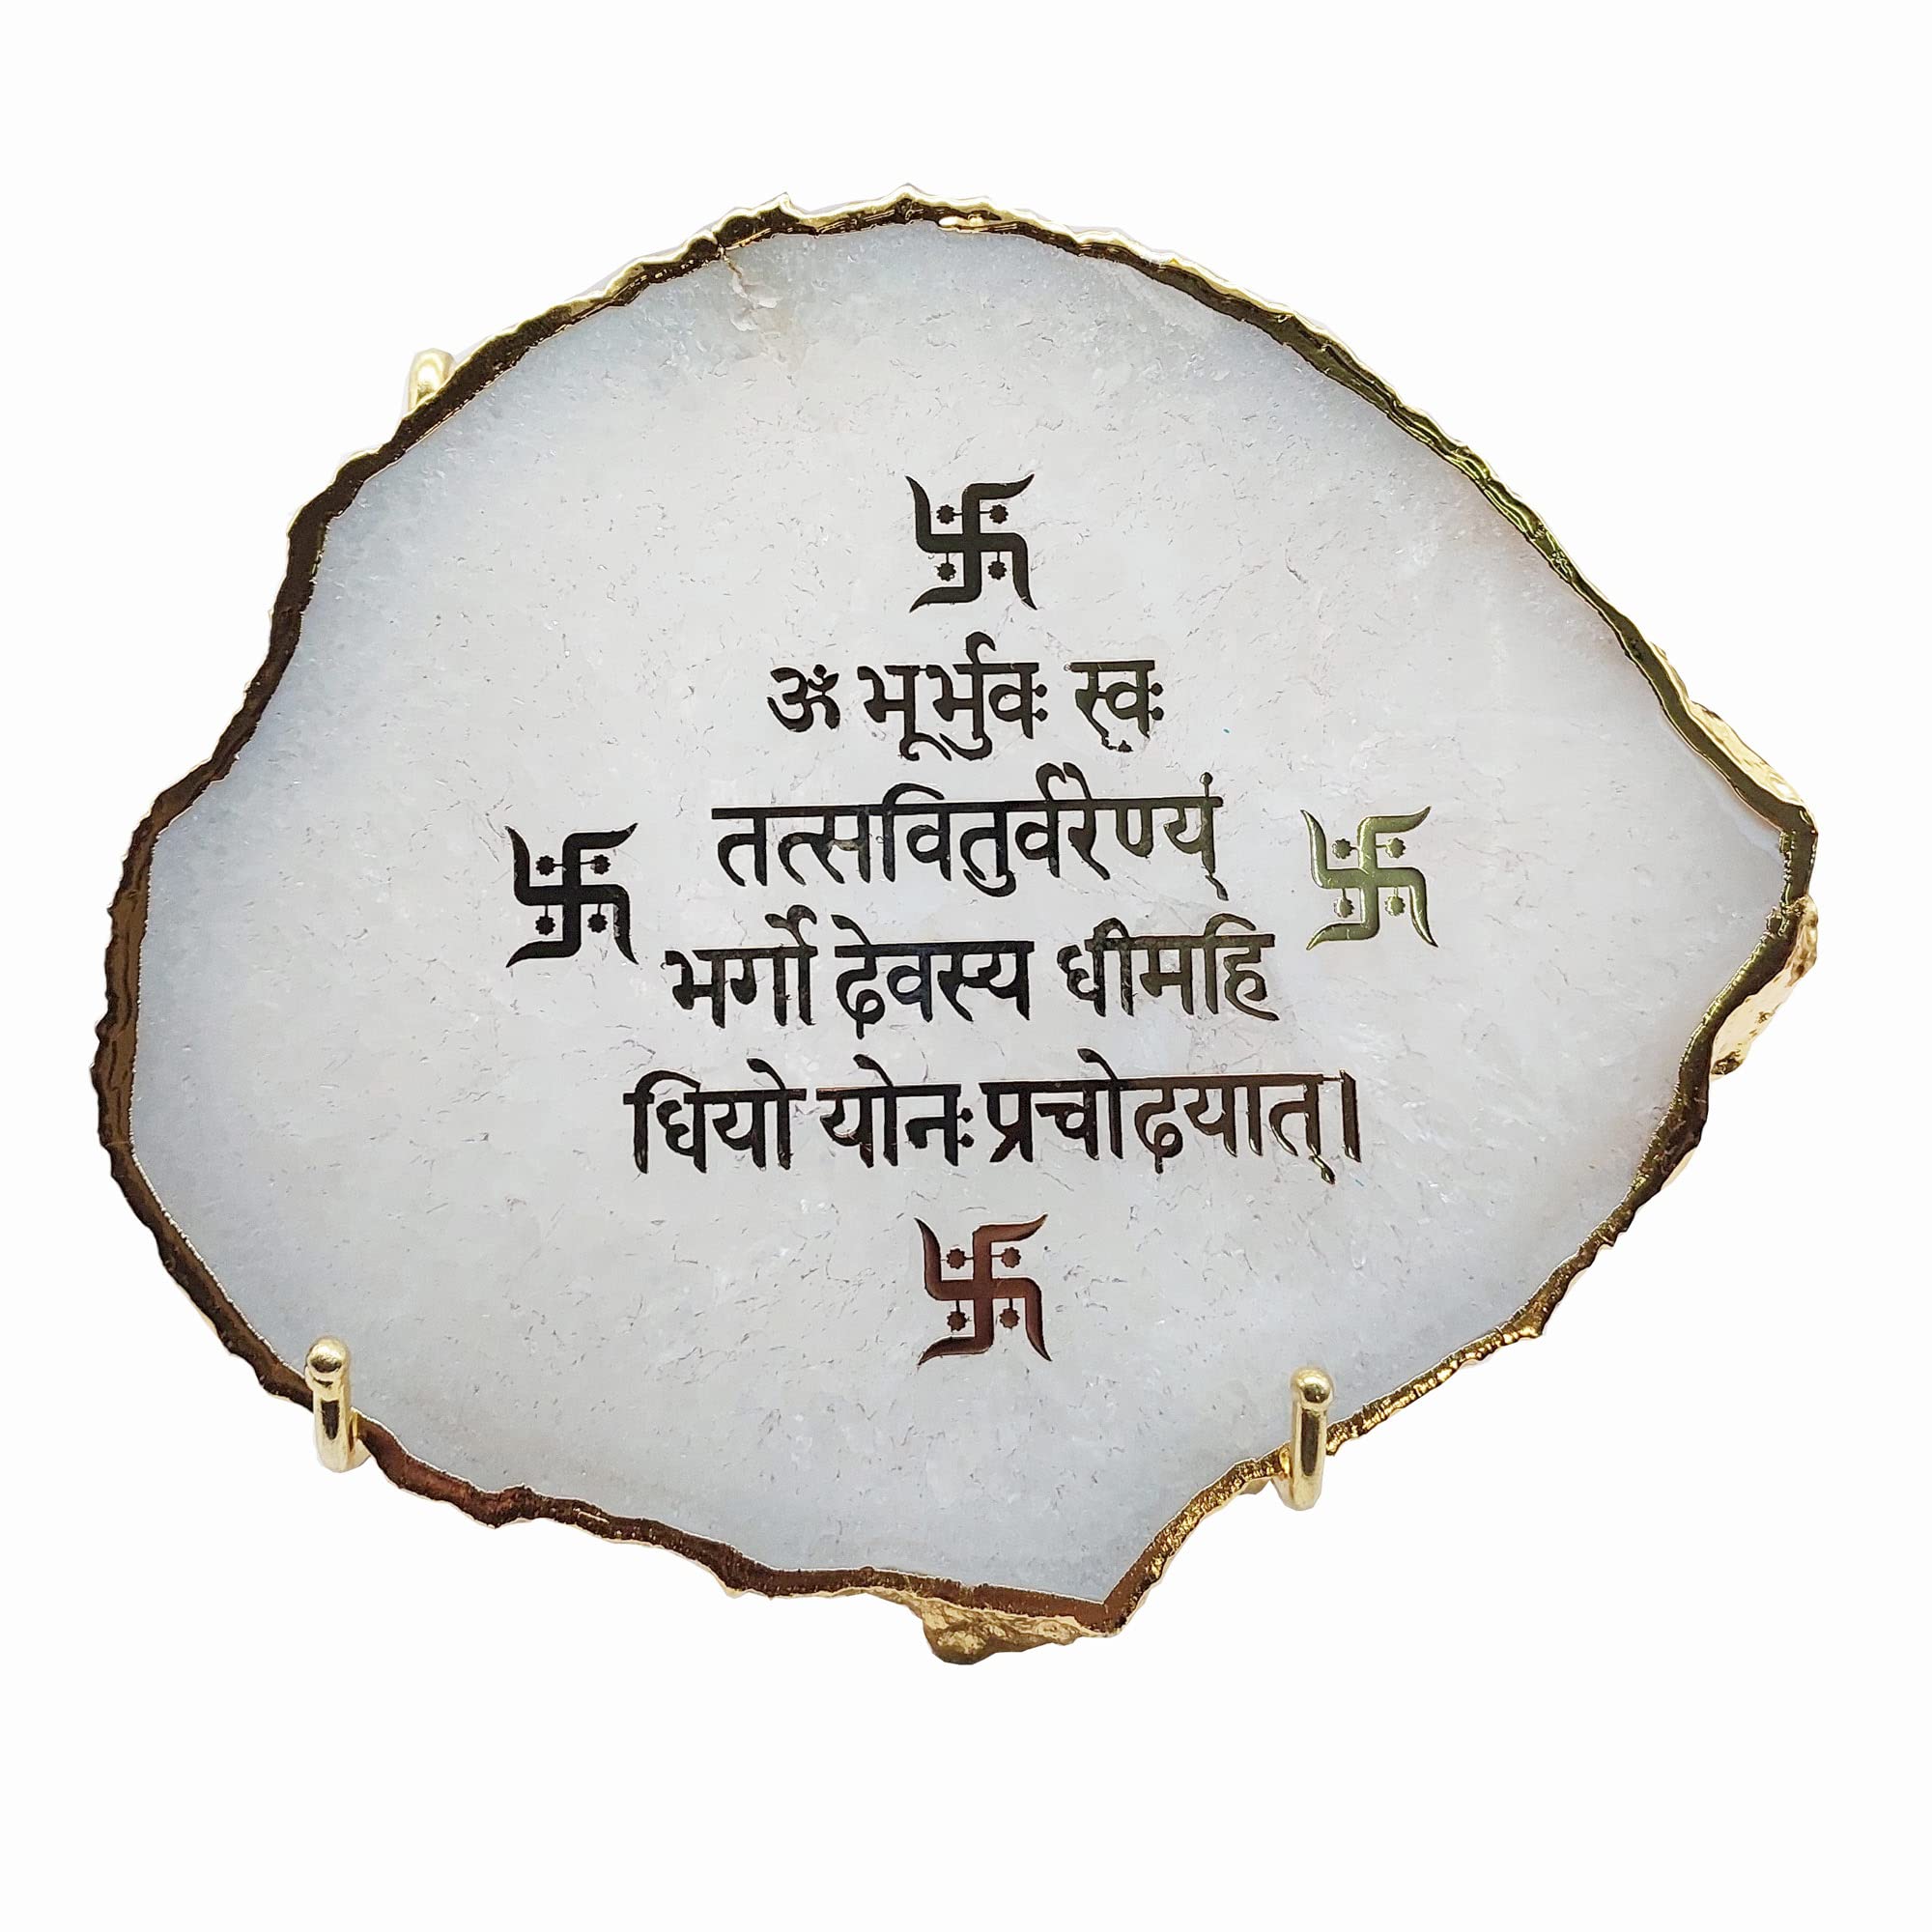 ॐ भूर्भुवः स्वः
तत्सवितुर्वरेण्यं
भर्गो देवस्य धीमहि
धियो योनः प्रचोदयात्।